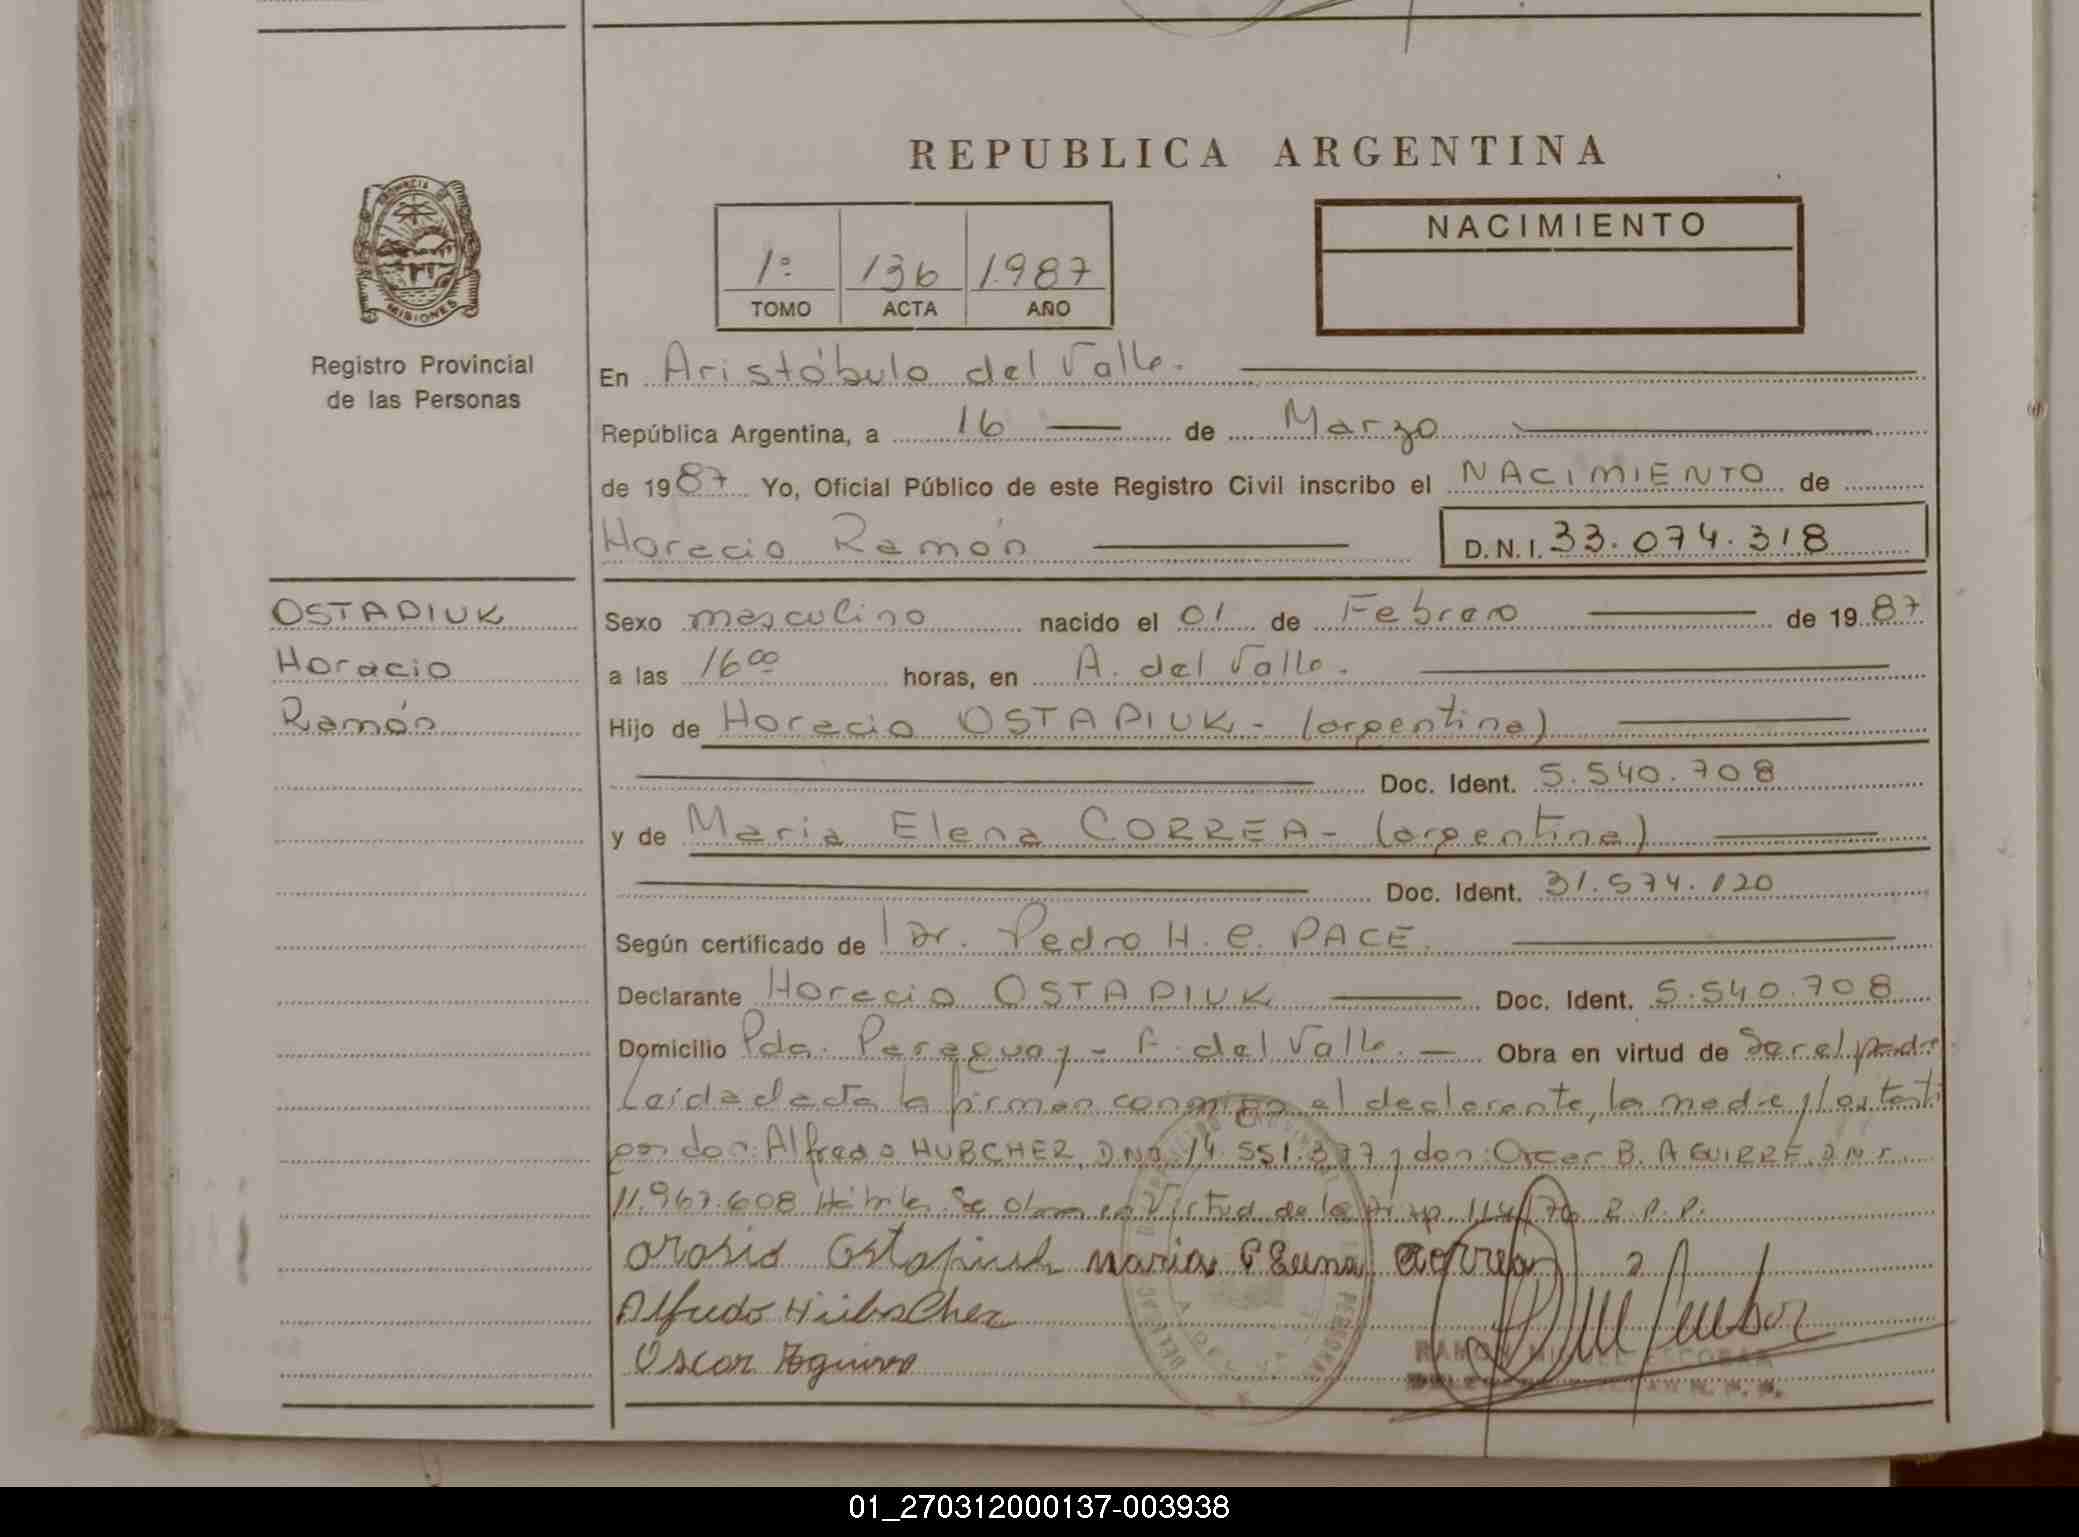 REPUBLICA ARGENTINA
PROVINCIA DE
MISIONES
Registro Provincial
de las Personas
1º 136 1.987
TOMO ACTA AÑO
NACIMIENTO
En Aristóbulo del Valle.
República Argentina, a 16 de Marzo
de 1987 Yo, Oficial Público de este Registro Civil inscribo el NACIMIENTO de
Horacio Ramón D.N.I. 33.074.318
OSTAPIUK
Horacio
Ramón
Sexo masculino nacido el 01 de Febrero de 1987
a las 16ºº horas, en A. del Valle.
Hijo de Horacio OSTAPIUK - (argentina)
Doc. Ident. 5.540.708
y de Maria Elena CORREA - (argentina)
Doc. Ident. 31.574.120
Según certificado de Dr. Pedro H. C. PACE.
Declarante Horacio OSTAPIUK Doc. Ident. 5.540.708
Domicilio Pda. Paraguay - A. del Valle. Obra en virtud de Ser el padre.
Leída el acta la firman conmigo el declarante, la madre y los testi
gos don: Alfredo HUBCHER, D.N.I. 14.551.377 y don: Oscar B. AGUIRRE D.N.I.
11.967.608 Hábiles. Se obra en Virtud de la Disp. 114/76 R.P.P.
orasio Ostapiuk maria Elena correa
Alfredo Hübscher
Oscar Aguirre
RAMON MIGUEL ESCOBAR
01_270312000137-003938